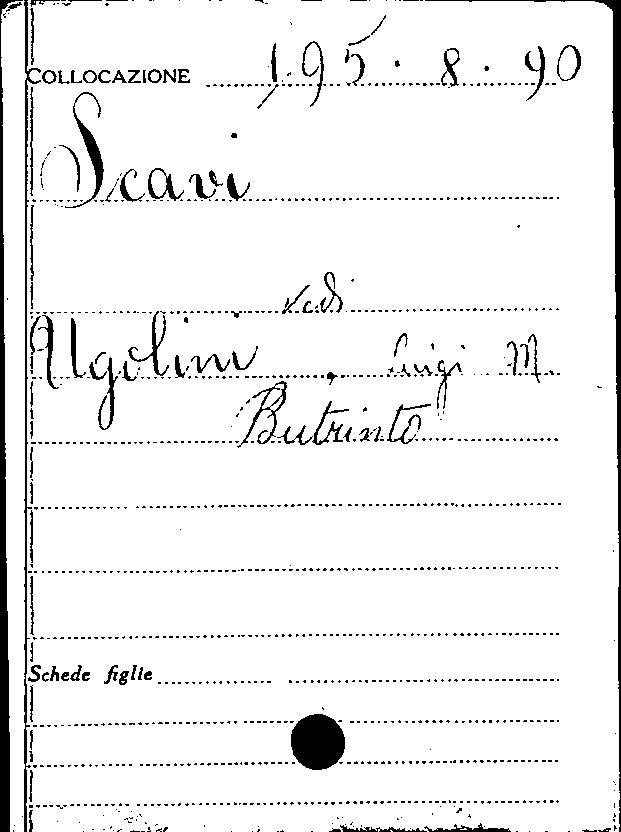 COLLOCAZIONE 195. 8. 90
Scavi
vedi
Ugolini, Luigi M.
Butrinto
Schede figlie